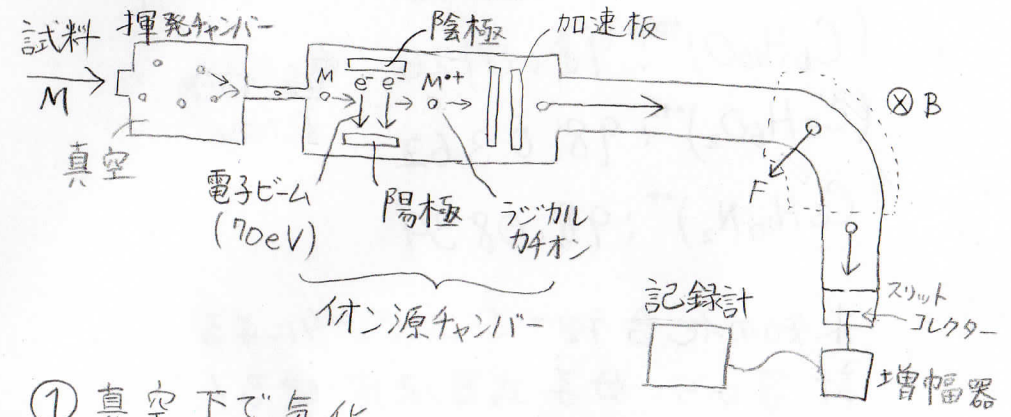 試料
M
揮発チャンバー
真空
M
e⁻ e⁻
陰極
M•+
加速板
B
F
電子ビーム
(70eV)
陽極
ラジカル
カチオン
イオン源チャンバー
スリット
コレクター
記録計
増幅器
① 真空下で気化